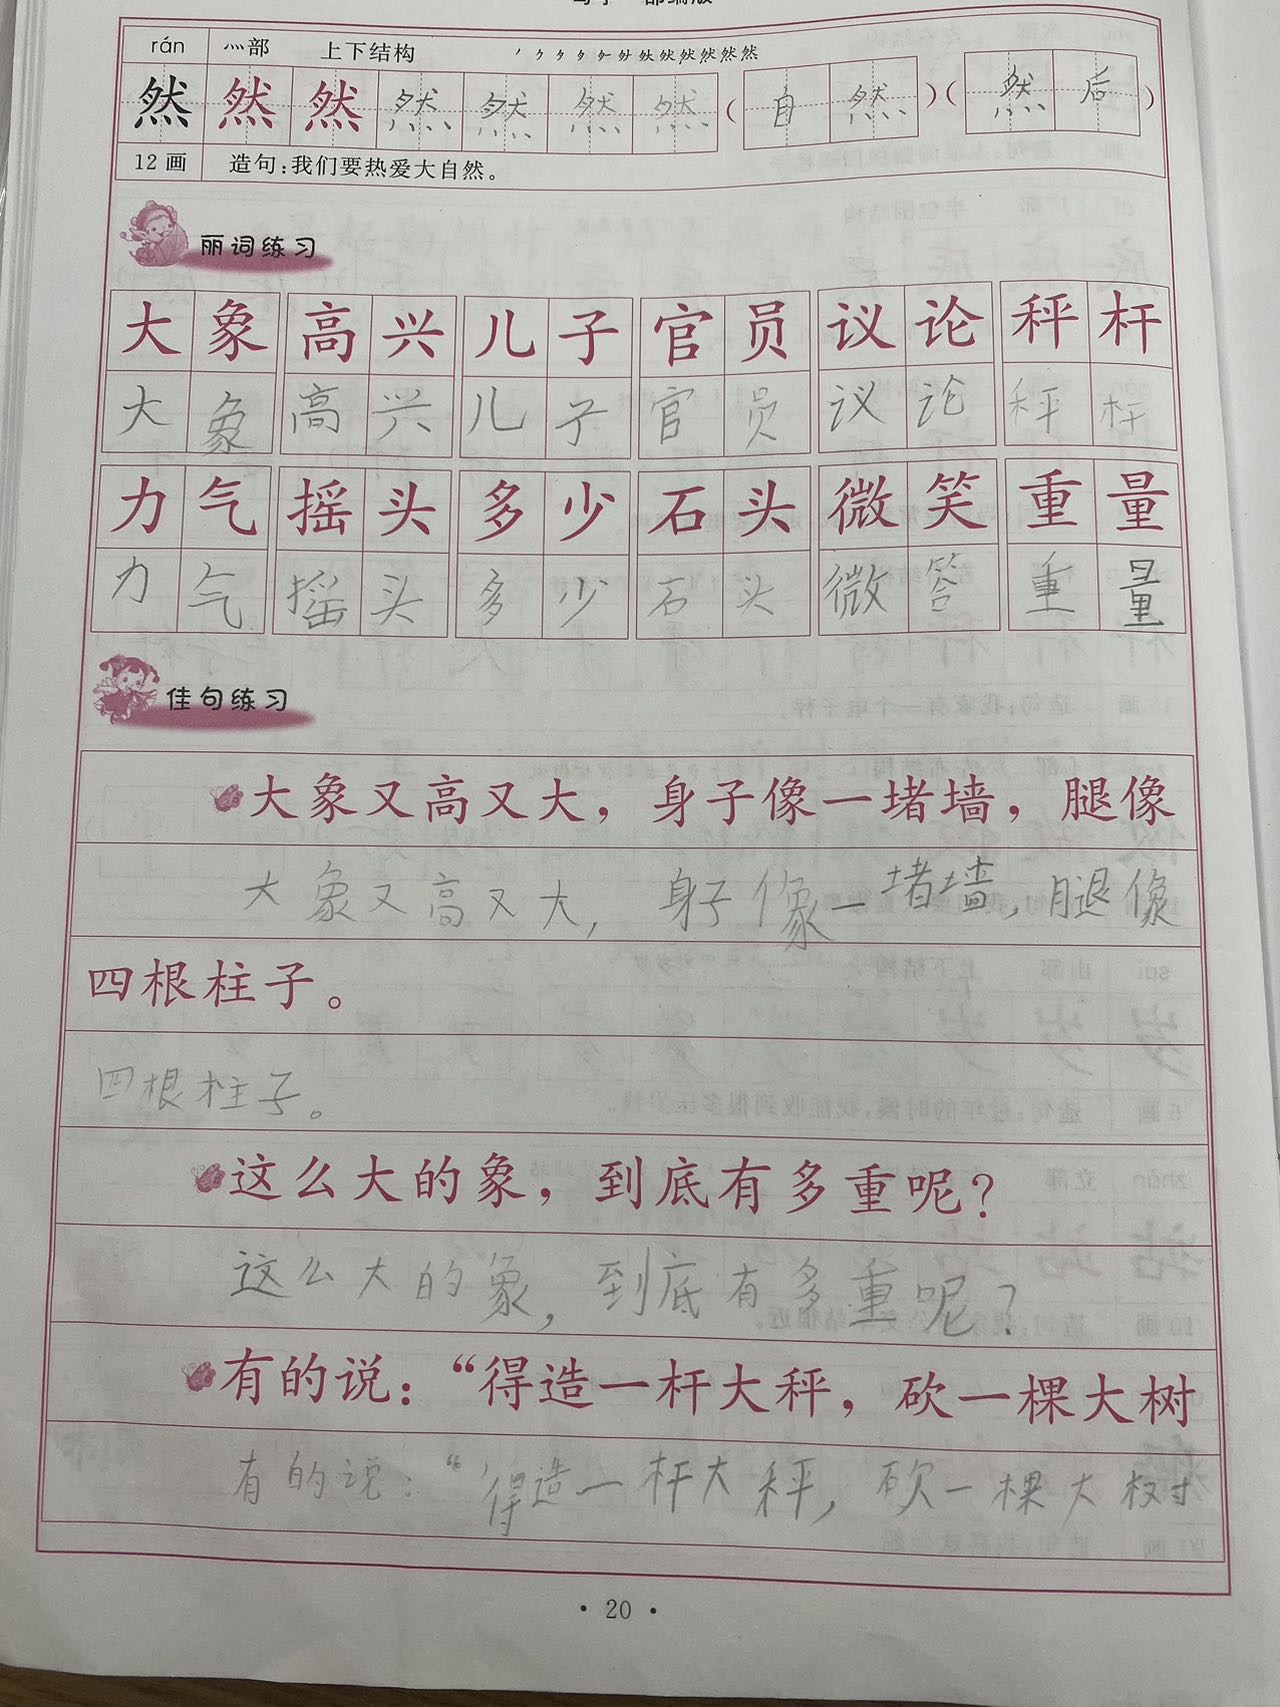 rán 灬部 上下结构
然 然 然 然 然 然 然 ( 自 然 ) ( 然 后 )
12画 造句:我们要热爱大自然。
丽词练习
大象 高兴 儿子 官员 议论 秤杆
大象 高兴 儿子 官员 议论 秤杆
力气 摇头 多少 石头 微笑 重量
力气 摇头 多少 石头 微答 重量
佳句练习
大象又高又大，身子像一堵墙，腿像
大象又高又大，身子像一堵墙，腿像
四根柱子。
四根柱子。
这么大的象，到底有多重呢？
这么大的象，到底有多重呢？
有的说：“得造一杆大秤，砍一棵大树
有的说：“得造一杆大秤，砍一棵大树
· 20 ·